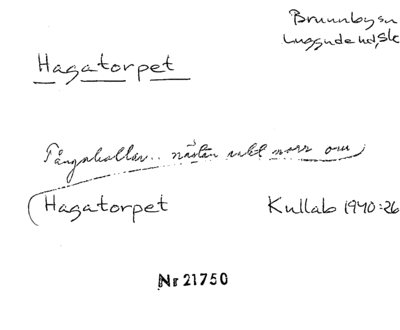 Brunnby sn
Luggude hd, Sk
Hagatorpet
Tångakallar.. nästan rakt norr om
Hagatorpet Kullab 1940:26
Nr 21750